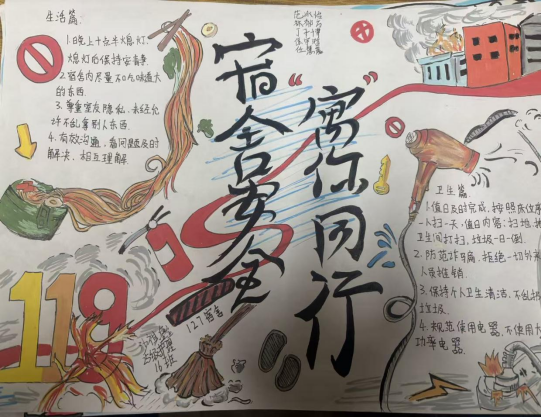 生活篇:
1.晚上十点半熄灯,
熄灯后保持安静
2.宿舍内尽量不吃味道大
的东西.
3.尊重室友隐私,未经允
许不乱拿别人东西.
4.有效沟通,有问题及时
解决,相互理解
宿舍安全
“寓你同行”
卫生篇
1.值日及时完成,按照床位序
一人扫一天.值日内容:扫地,
卫生间打扫.垃圾一日一倒.
2.防范诈骗,拒绝一切外
人员推销.
3.保持个人卫生清洁,不乱
垃圾.
4.规范使用电器,不使用大
功率电器.
119
127宿舍
16班